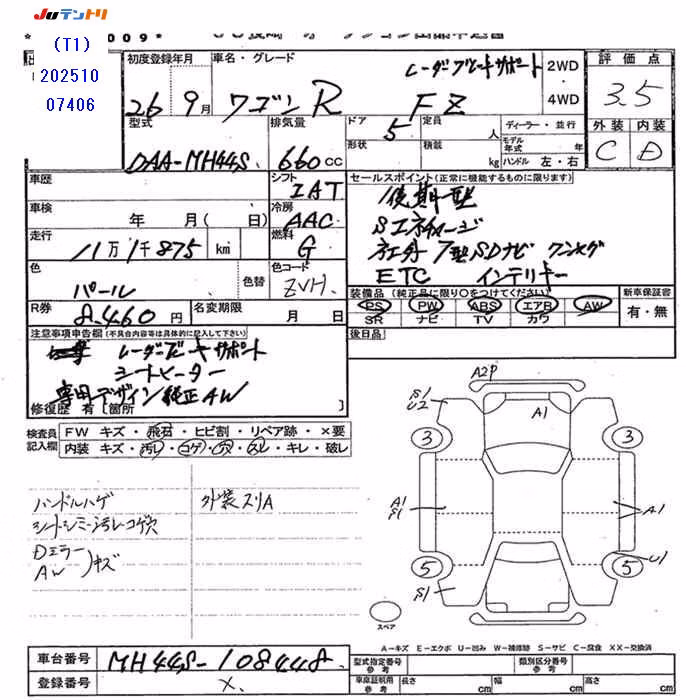 JUテントリ
(T1)
202510
07406
初度登録年月
車名・グレード
2WD
4WD
評価点
26年 9月
ワゴンR
FZ
レーダーブレーキサポート
3.5
外装
内装
C
D
型式
排気量
ドア
定員
人
ディーラー・並行
DAA-MH44S
660cc
5
形状
積載
kg
モデル年式
年
ハンドル 左・右
車歴
シフト
IAT
セールスポイント(正常に機能するものに限ります)
後期型
Sエネチャージ
社外 7型SDナビ ワンセグ
ETC インテリキー
車検
年 月( 日)
冷房
AAC
走行
11万1千875 km
燃料
G
色
パール
色替
色コード
ZVH
装備品(純正品に限り〇をつけてください)
新車保証書
PS PW ABS エアB AW
SR ナビ TV カワ
有・無
R券
8460円
名変期限
月 日
後日品
注意事項申告欄(不具合内容等は具体的に記入して下さい)
レーダーブレーキサポート
シートヒーター
専用デザイン純正AW
修復歴 有[箇所 ]
検査員記入欄
FW キズ・飛石・ヒビ割・リペア跡・×要
内装 キズ・汚レ・コゲ・穴・スレ・キレ・破レ
ハンドルハゲ
外装スリA
シートシミ汚レコゲ穴
Dミラー
AW
キズ
A2P
S1
U2
A1
3
3
A1
S1
A1
U1
5
5
S1
スペア
A-キズ E-エクボ U-凹み W-補修跡 S-サビ C-腐食 XX-交換済
車台番号
MH44S-108448
登録番号
×
型式指定番号
参考
類別区分番号
参考
車庫証明用
参考
長さ
cm
幅
cm
高さ
cm